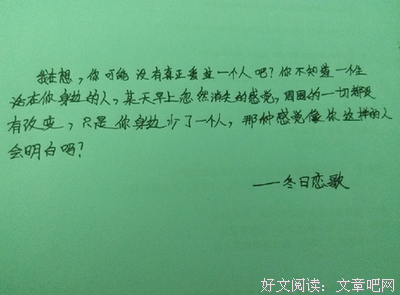 我在想，你可能没有真正爱过一个人吧？你不知道一个生
活在你身边的人，某天早上忽然消失的感觉，周围的一切都没
有改变，只是你身边少了一个人，那种感觉像你这样的人
会明白吗？
——冬日恋歌
好文阅读：文章吧网